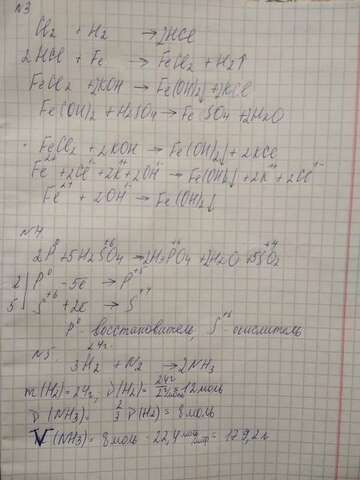 №3
Cl₂ + H₂ → 2HCl
2HCl + Fe → FeCl₂ + H₂↑
FeCl₂ + 2KOH → Fe(OH)₂↓ + 2KCl
Fe(OH)₂ + H₂SO₄ → FeSO₄ + 2H₂O
FeCl₂ + 2KOH → Fe(OH)₂↓ + 2KCl
Fe²⁺ + 2Cl⁻ + 2K⁺ + 2OH⁻ → Fe(OH)₂↓ + 2K⁺ + 2Cl⁻
Fe²⁺ + 2OH⁻ → Fe(OH)₂↓
№4
2P⁰ + 5H₂S⁺⁶O₄ → 2H₃P⁺⁵O₄ + 2H₂O + 5S⁺⁴O₂
2 | P⁰ - 5e → P⁺⁵
5 | S⁺⁶ + 2e → S⁺⁴
P⁰ - восстановитель, S⁺⁶ - окислитель
№5.
24г
3H₂ + N₂ → 2NH₃
m(H₂) = 24г, ν(H₂) = 24г / 2г/моль = 12моль
ν(NH₃) = 2/3 ν(H₂) = 8моль
V(NH₃) = 8моль · 22,4 = 179,2л